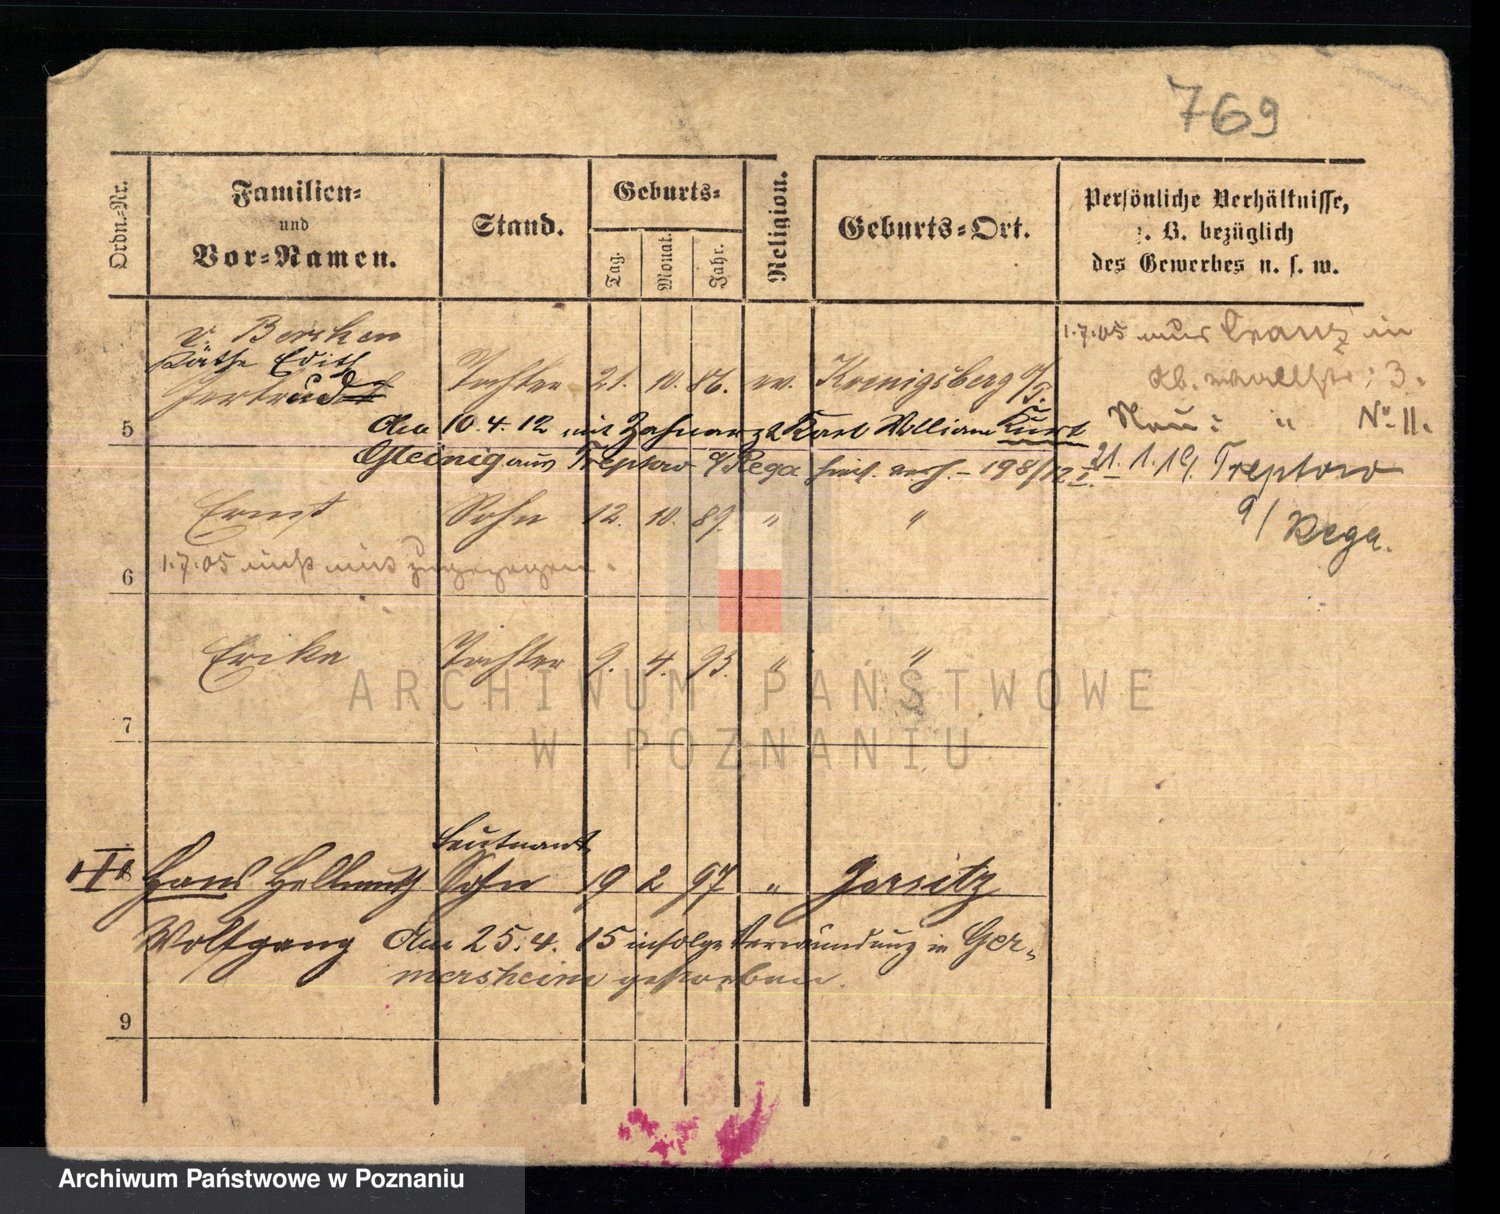 769
Ordn.-Nr.
Familien-
und
Vor-Namen.
Stand.
Geburts-
Tag.
Monat.
Jahr.
Religion.
Geburts-Ort.
Persönliche Verhältnisse,
z. B. bezüglich
des Gewerbes u. s. w.
v. Borcken
Käthe Edith
Gertrud Tochter 21. 10. 86. ev. Koenigsberg i/P.
1.7.05 nur Cranz in
Kb. Wallstr. 3.
5 Am 10.4.12 mit Zahnarzt Karl William Kurt
Neu: " No 11.
Gleinig aus Treptow a/Rega hies. verh. - 198/12 I. -
21.1.19. Treptow
a/ Rega.
Ernst Sohn 12. 10. 89. " "
6 1.7.05 nicht mit zugezogen.
Erika Tochter 9. 4. 93. " "
7
ARCHIWUM PAŃSTWOWE
W POZNANIU
Leutnant
Hans Hellmuth Sohn 19 2 97 " Jersitz
Wolfgang Am 25.4.15 infolge Verwundung in Ger-
mersheim gestorben.
9
Archiwum Państwowe w Poznaniu